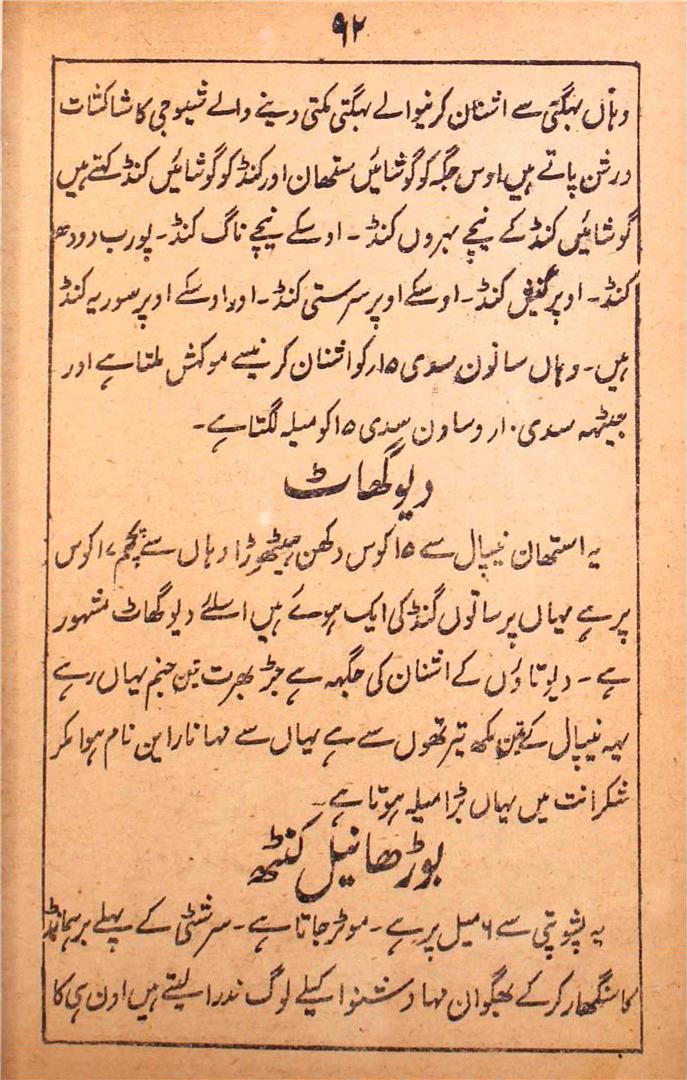 ۹۲
وہاں بہگتی سے اشنان کرنیوالے بہگتی مکتی دینے والے شیوجی کا شاکشات
درشن پاتے ہیں اوس جگہ کو گوشائیں ستھان اور کنڈ کو گوشائیں کنڈ کہتے ہیں
گوشائیں کنڈ کے نیچے بہروں کنڈ۔ اوسکے نیچے ناگ کنڈ۔ پورب دودھ
کنڈ۔ اوپر گنیش کنڈ۔ اوسکے اوپر سرستی کنڈ۔ اور اوسکے اوپر سوریہ کنڈ
ہیں۔ وہاں سانون سدی ۱۵ار کو اشنان کرنیسے موکش ملتا ہے اور
جیٹھہ سدی ۱۰ار و ساون سدی ۱۵ کو میلہ لگتا ہے۔
دیوگھاٹ
یہ استھان نیپال سے ۱۵ کوس دکھن ہیٹھوڑا وہاں سے پچھم ۱۷ کوس
پر ہے یہاں پر ساتوں گنڈکی ایک ہوئے ہیں اسلئے دیوگھاٹ مشہور
ہے۔ دیوتاؤں کے اشنان کی جگہہ ہے جڑ بھرت تین جنم یہاں رہے
یہہ نیپال کے تین مکھ تیرتھوں سے ہے یہاں سے مہا ناراین نام ہوا مکر
شکرانت میں یہاں بڑا میلہ ہوتا ہے۔
بوڑھا نیل کنٹھ
یہ پشوپتی سے ۶ میل پر ہے۔ موٹر جاتا ہے۔ سرشٹی کے پہلے برہمانڈ
کا سنگھار کرکے بھگوان مہا وشنو اکیلے لوگ ندرا لیتے ہیں اون ہی کا